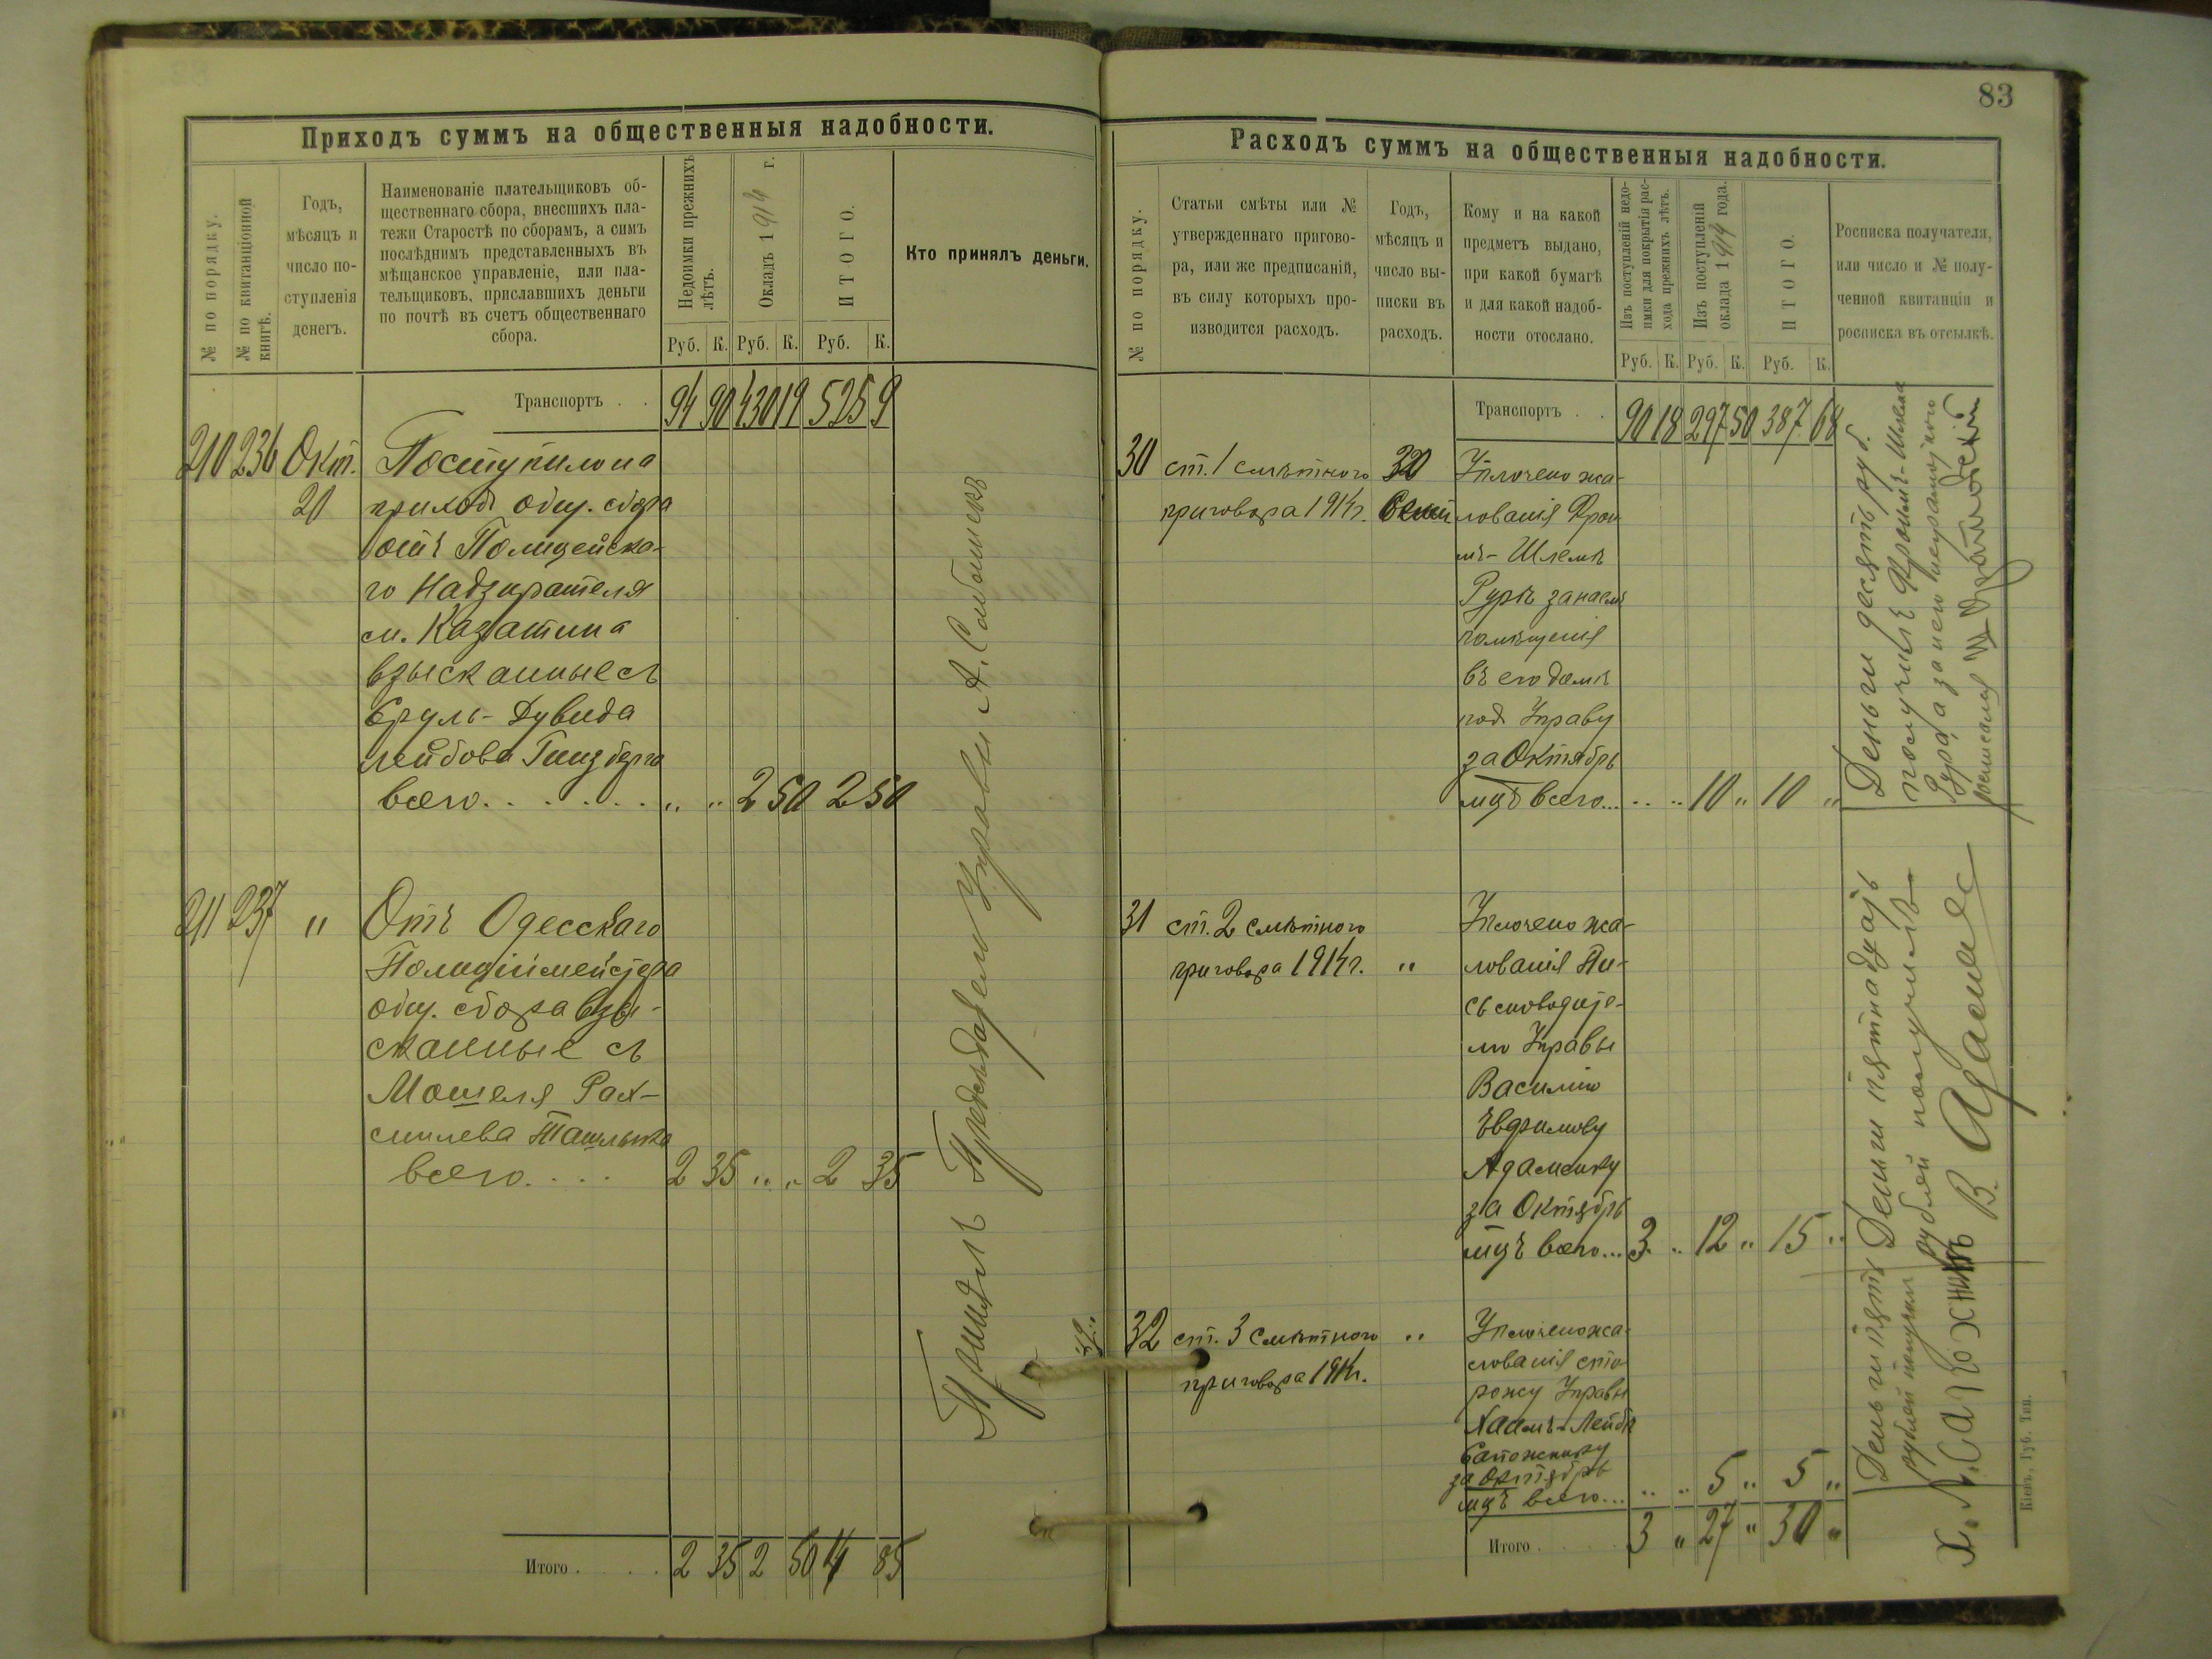 Приходъ суммъ на общественныя надобности.
№ по порядку.
№ по квитанціонной книгѣ.
Годъ,
мѣсяцъ и
число по-
ступленія
денегъ.
Наименованіе плательщиковъ об-
щественнаго сбора, внесшихъ пла-
тежи Старостѣ по сборамъ, а симъ
послѣднимъ представленныхъ въ
мѣщанское управленіе, или пла-
тельщиковъ, приславшихъ деньги
по почтѣ въ счетъ общественнаго
сбора.
Недоимки прежнихъ
лѣтъ.
Окладъ 1914 г.
ИТОГО.
Кто принялъ деньги.
Руб. К. Руб. К. Руб. К.
Транспортъ . . 94 90 430 19 525 9
210 236 Окт. Поступило на
20 приходъ общ. сбора
отъ Полицейска-
го Надзирателя
м. Казатина
взысканные съ
Сруль-Дувида
Лейбова Гинзберга
всего . . . . . . „ „ 2 50 2 50
211 237 „ Отъ Одесскаго
Полиціймейстера
общ. сбора взы-
сканные съ
Мошеля Рах-
миллева
всего . . . . 2 35 „ „ 2 35
Принялъ Предсѣдатель Управы А.
Итого . . . . 2 35 2 50 4 85
83
Расходъ суммъ на общественныя надобности.
№ по порядку.
Статьи смѣты или №
утвержденнаго пригово-
ра, или же предписаній,
въ силу которыхъ про-
изводится расходъ.
Годъ,
мѣсяцъ и
число вы-
писки въ
расходъ.
Кому и на какой
предметъ выдано,
при какой бумагѣ
и для какой надоб-
ности отослано.
Изъ поступленій недо-
имки для покрытія рас-
хода прежнихъ лѣтъ.
Изъ поступленій
оклада 1914 года.
ИТОГО.
Росписка получателя,
или число и № полу-
ченной квитанціи и
росписка въ отсылкѣ.
Руб. К. Руб. К. Руб. К.
Транспортъ . . 90 18 297 50 387 68
30 ст. 1 смѣтного Уплочено жа-
приговора 1914г. лованія Фрои
мъ-Шлемѣ
Гурѣ за наемъ
помѣщенія
въ его домѣ
под Управу
за Октябрь
мцъ всего... „ „ 10 „ 10 „
Деньги десять руб.
получилъ Фроимъ-Шлема
Гура, а за него неграмотного
росписался
31 ст. 2 смѣтного Уплочено жа-
приговора 1914г. „ лованія Пи-
сьмоводите-
лю Управы
Василію
Евфимову
Адаменку
за Октябрь
мцъ всего... 3 „ 12 „ 15 „
Деньги пятнадцать
рублей получилъ
В. Адаменко
32 ст. 3 смѣтного „ Уплочено жа-
приговора 1914г. лованія сто-
рожу Управы
Хаимъ-Лейбѣ
Сапожнику
за Октябрь
мцъ всего... „ „ 5 „ 5 „
Деньги пять
рублей получил
Х. Л. Сапожникъ
Итого . . . . 3 „ 27 „ 30 „
Кіевъ, Губ. Тип.